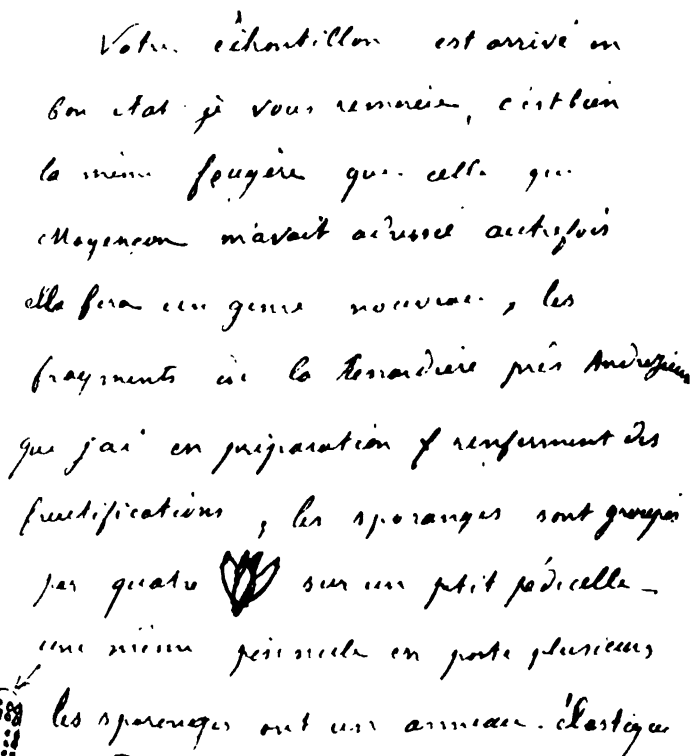 Votre échantillon est arrivé en
bon état je vous remercie, c'est bien
la même fougère que celle que
Moyençon m'avait adressé autrefois
elle fera un genre nouveau, les
fragments de la Renardière près Andrézieux
que j'ai en préparation renferment des
fructifications, les sporanges sont groupés
par quatre sur un petit pédicelle _
une même pinnule en porte plusieurs
les sporanges ont un anneau élastique